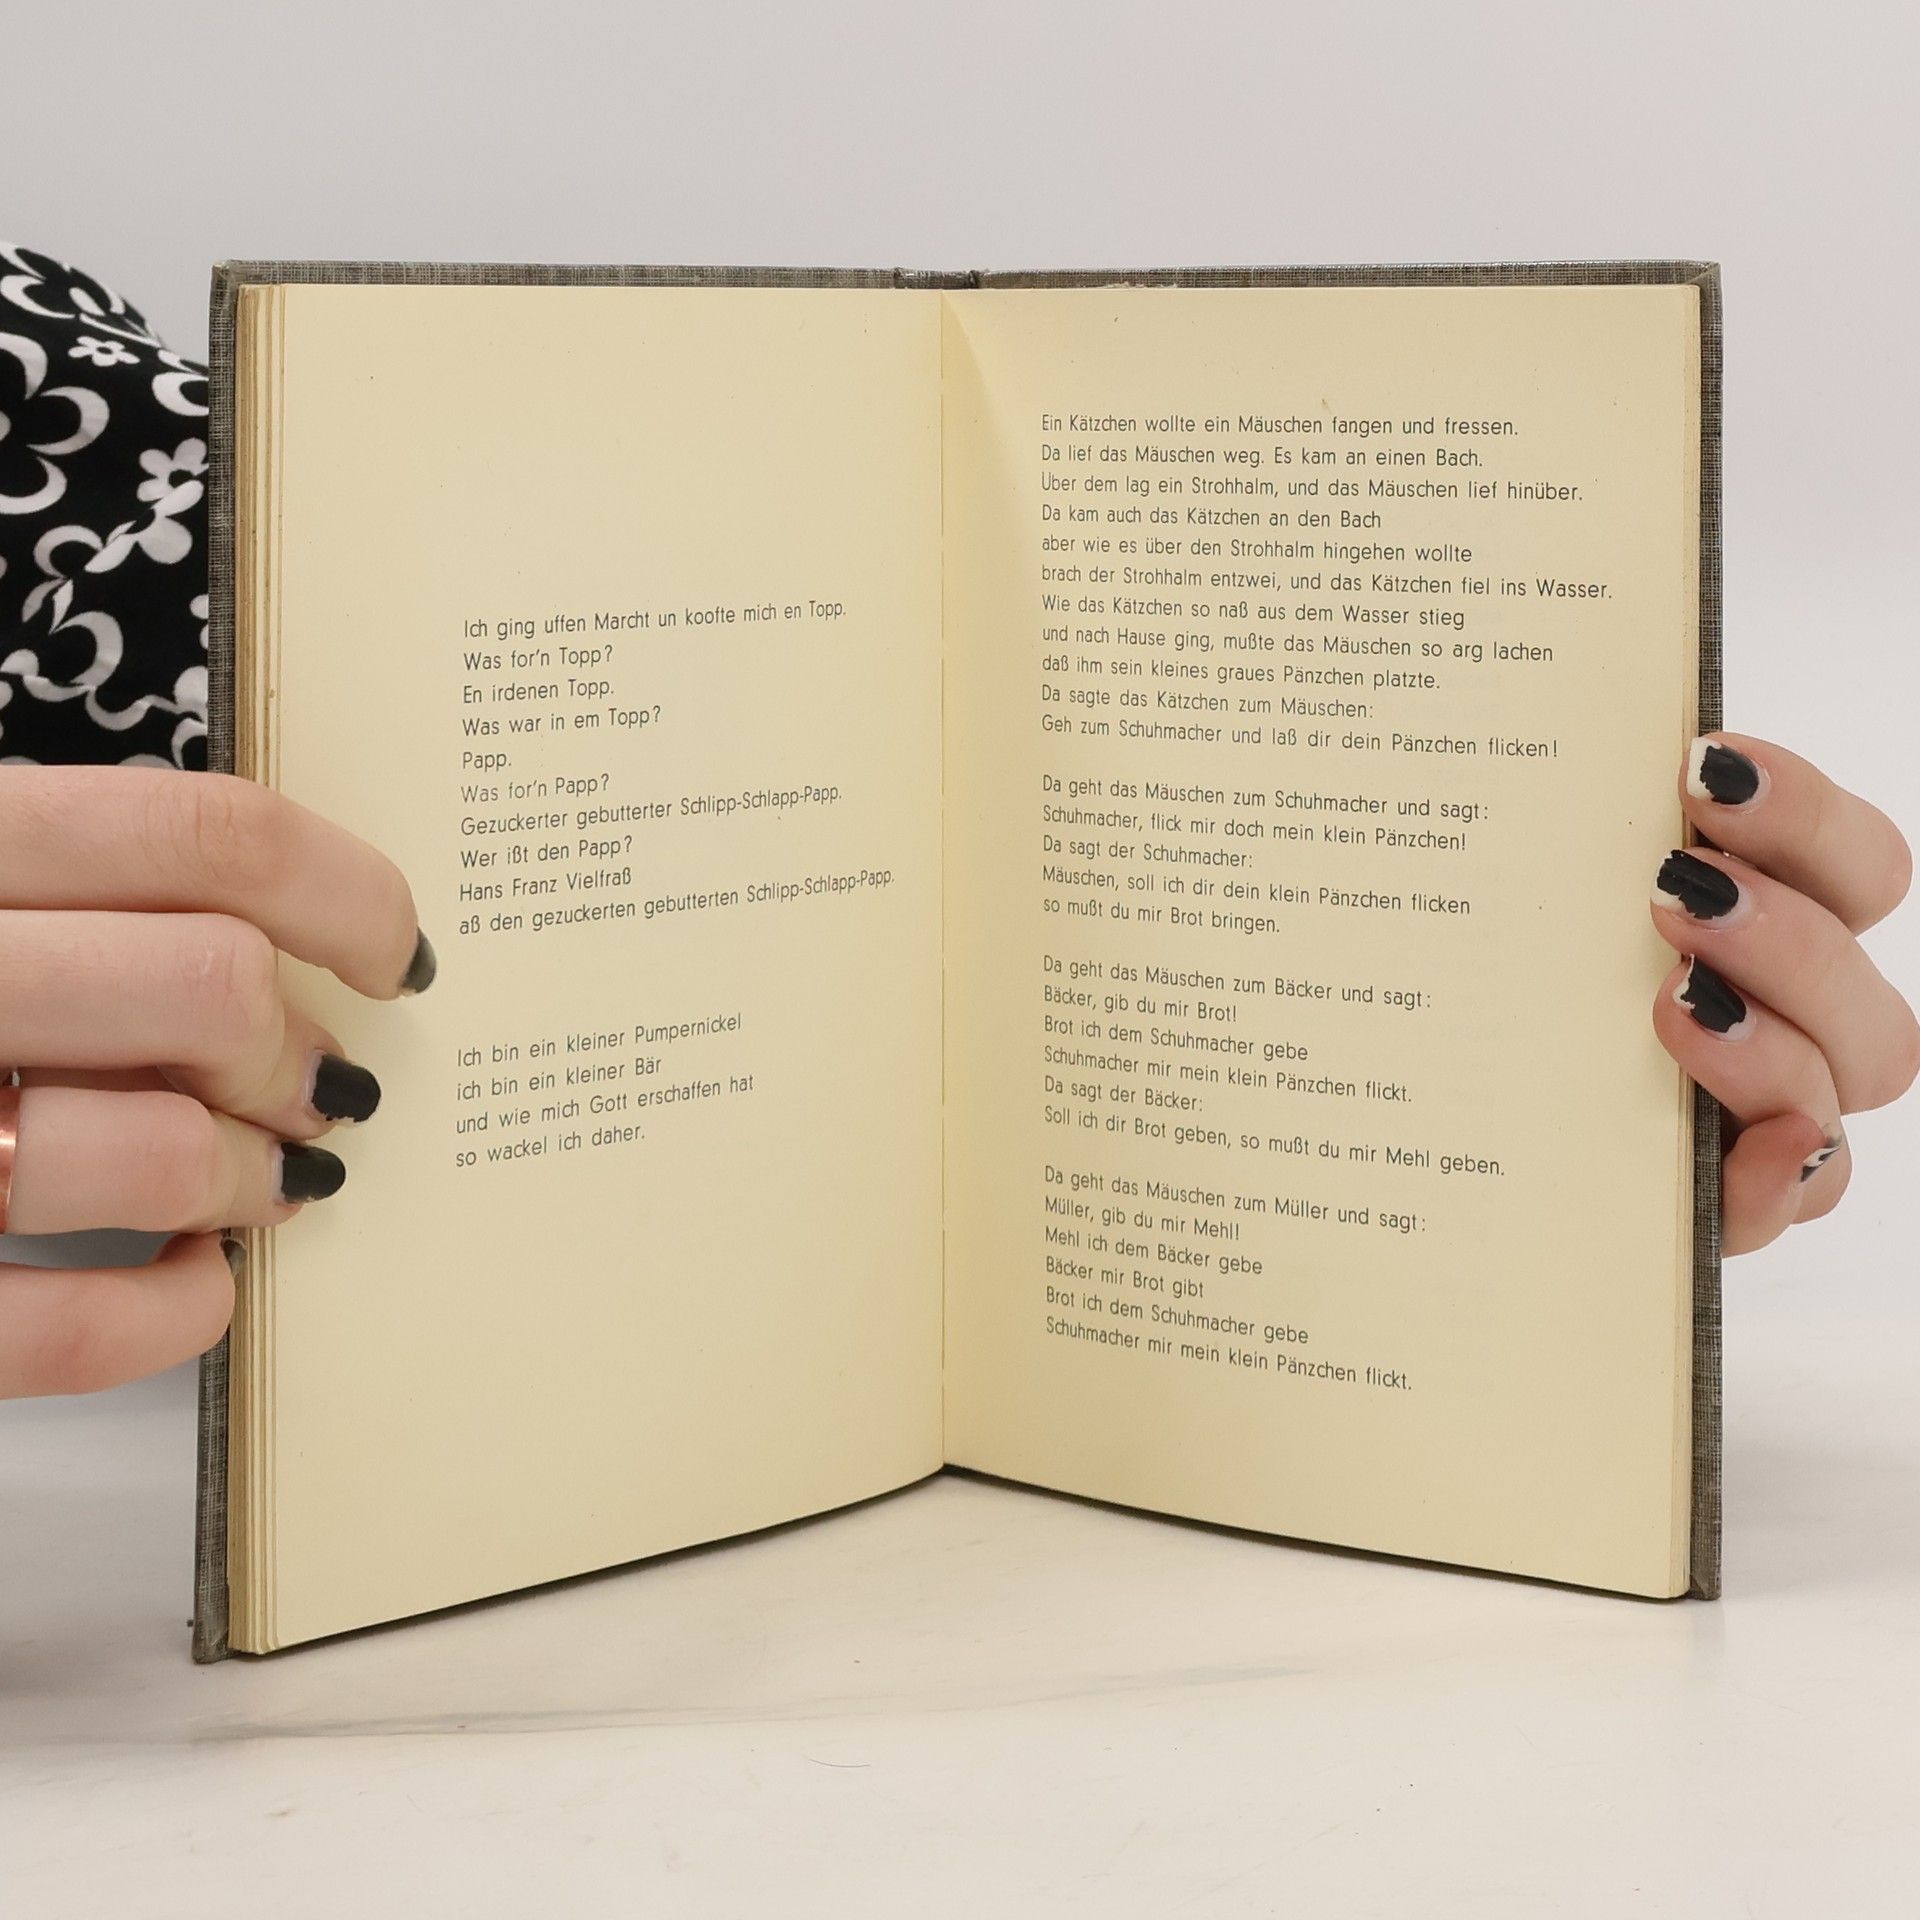 Ich ging uffen Marcht un koofte mich en Topp.
Was for'n Topp?
En irdenen Topp.
Was war in em Topp?
Papp.
Was for'n Papp?
Gezuckerter gebutterter Schlipp-Schlapp-Papp.
Wer ißt den Papp?
Hans Franz Vielfraß
aß den gezuckerten gebutterten Schlipp-Schlapp-Papp.
Ich bin ein kleiner Pumpernickel
ich bin ein kleiner Bär
und wie mich Gott erschaffen hat
so wackel ich daher.
Ein Kätzchen wollte ein Mäuschen fangen und fressen.
Da lief das Mäuschen weg. Es kam an einen Bach.
Über dem lag ein Strohhalm, und das Mäuschen lief hinüber.
Da kam auch das Kätzchen an den Bach
aber wie es über den Strohhalm hingehen wollte
brach der Strohhalm entzwei, und das Kätzchen fiel ins Wasser.
Wie das Kätzchen so naß aus dem Wasser stieg
und nach Hause ging, mußte das Mäuschen so arg lachen
daß ihm sein kleines graues Pänzchen platzte.
Da sagte das Kätzchen zum Mäuschen:
Geh zum Schuhmacher und laß dir dein Pänzchen flicken!
Da geht das Mäuschen zum Schuhmacher und sagt:
Schuhmacher, flick mir doch mein klein Pänzchen!
Da sagt der Schuhmacher:
Mäuschen, soll ich dir dein klein Pänzchen flicken
so mußt du mir Brot bringen.
Da geht das Mäuschen zum Bäcker und sagt:
Bäcker, gib du mir Brot!
Brot ich dem Schuhmacher gebe
Schuhmacher mir mein klein Pänzchen flickt.
Da sagt der Bäcker:
Soll ich dir Brot geben, so mußt du mir Mehl geben.
Da geht das Mäuschen zum Müller und sagt:
Müller, gib du mir Mehl!
Mehl ich dem Bäcker gebe
Bäcker mir Brot gibt
Brot ich dem Schuhmacher gebe
Schuhmacher mir mein klein Pänzchen flickt.